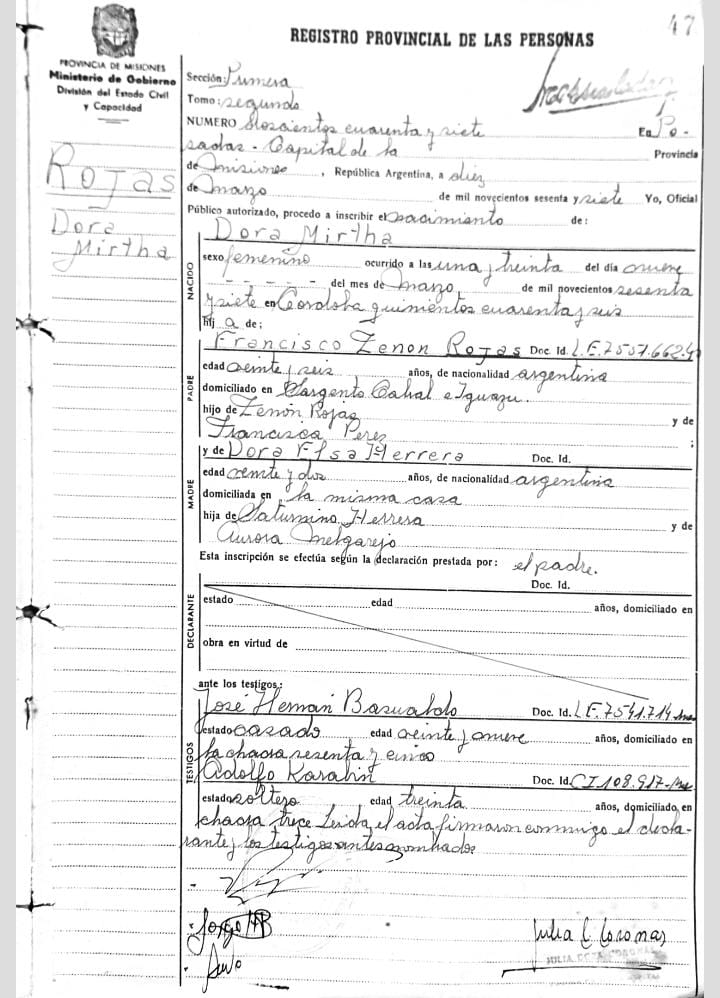 47
REGISTRO PROVINCIAL DE LAS PERSONAS
PROVINCIA DE MISIONES
Ministerio de Gobierno
División del Estado Civil
y Capacidad
Rojas
Dora
Mirtha
Sección: Primera
Tomo: segundo
NUMERO Doscientos cuarenta y siete En Po-
sadas - Capital de la Provincia
de Misiones, República Argentina, a diez
de marzo de mil novecientos sesenta y siete Yo, Oficial
Público autorizado, procedo a inscribir el nacimiento de:
NACIDO
Dora Mirtha
sexo femenino ocurrido a las una y treinta del día nueve
- - - - - - del mes de Marzo de mil novecientos sesenta
y siete en Cordoba quinientos cuarenta y seis
hij a de:
PADRE
Francisco Zenon Rojas Doc. Id. L.E. 7.557.662
edad veinte y seis años, de nacionalidad argentina
domiciliado en Sargento Cabral e Iguazu.
hijo de Zenón Rojas y de
Francisca Perez ;
MADRE
y de Dora Elsa Herrera Doc. Id.
edad veinte y dos años, de nacionalidad argentina
domiciliada en la misma casa
hija de Saturnino Herrera y de
Aurora Melgarejo
Esta inscripción se efectúa según la declaración prestada por: el padre.
DECLARANTE
Doc. Id.
estado edad años, domiciliado en
obra en virtud de
ante los testigos:
TESTIGOS
José Hernán Basualdo Doc. Id. L.E. 7.541.714
estado casado edad veinte y nueve años, domiciliado en
la chacra sesenta y cinco
Adolfo Karabin Doc. Id. CI 108.917
estado soltero edad treinta años, domiciliado en
chacra trece Leida el acta firmaron conmigo el decla-
rante y los testigos antes nombrados
Julia C Coronas